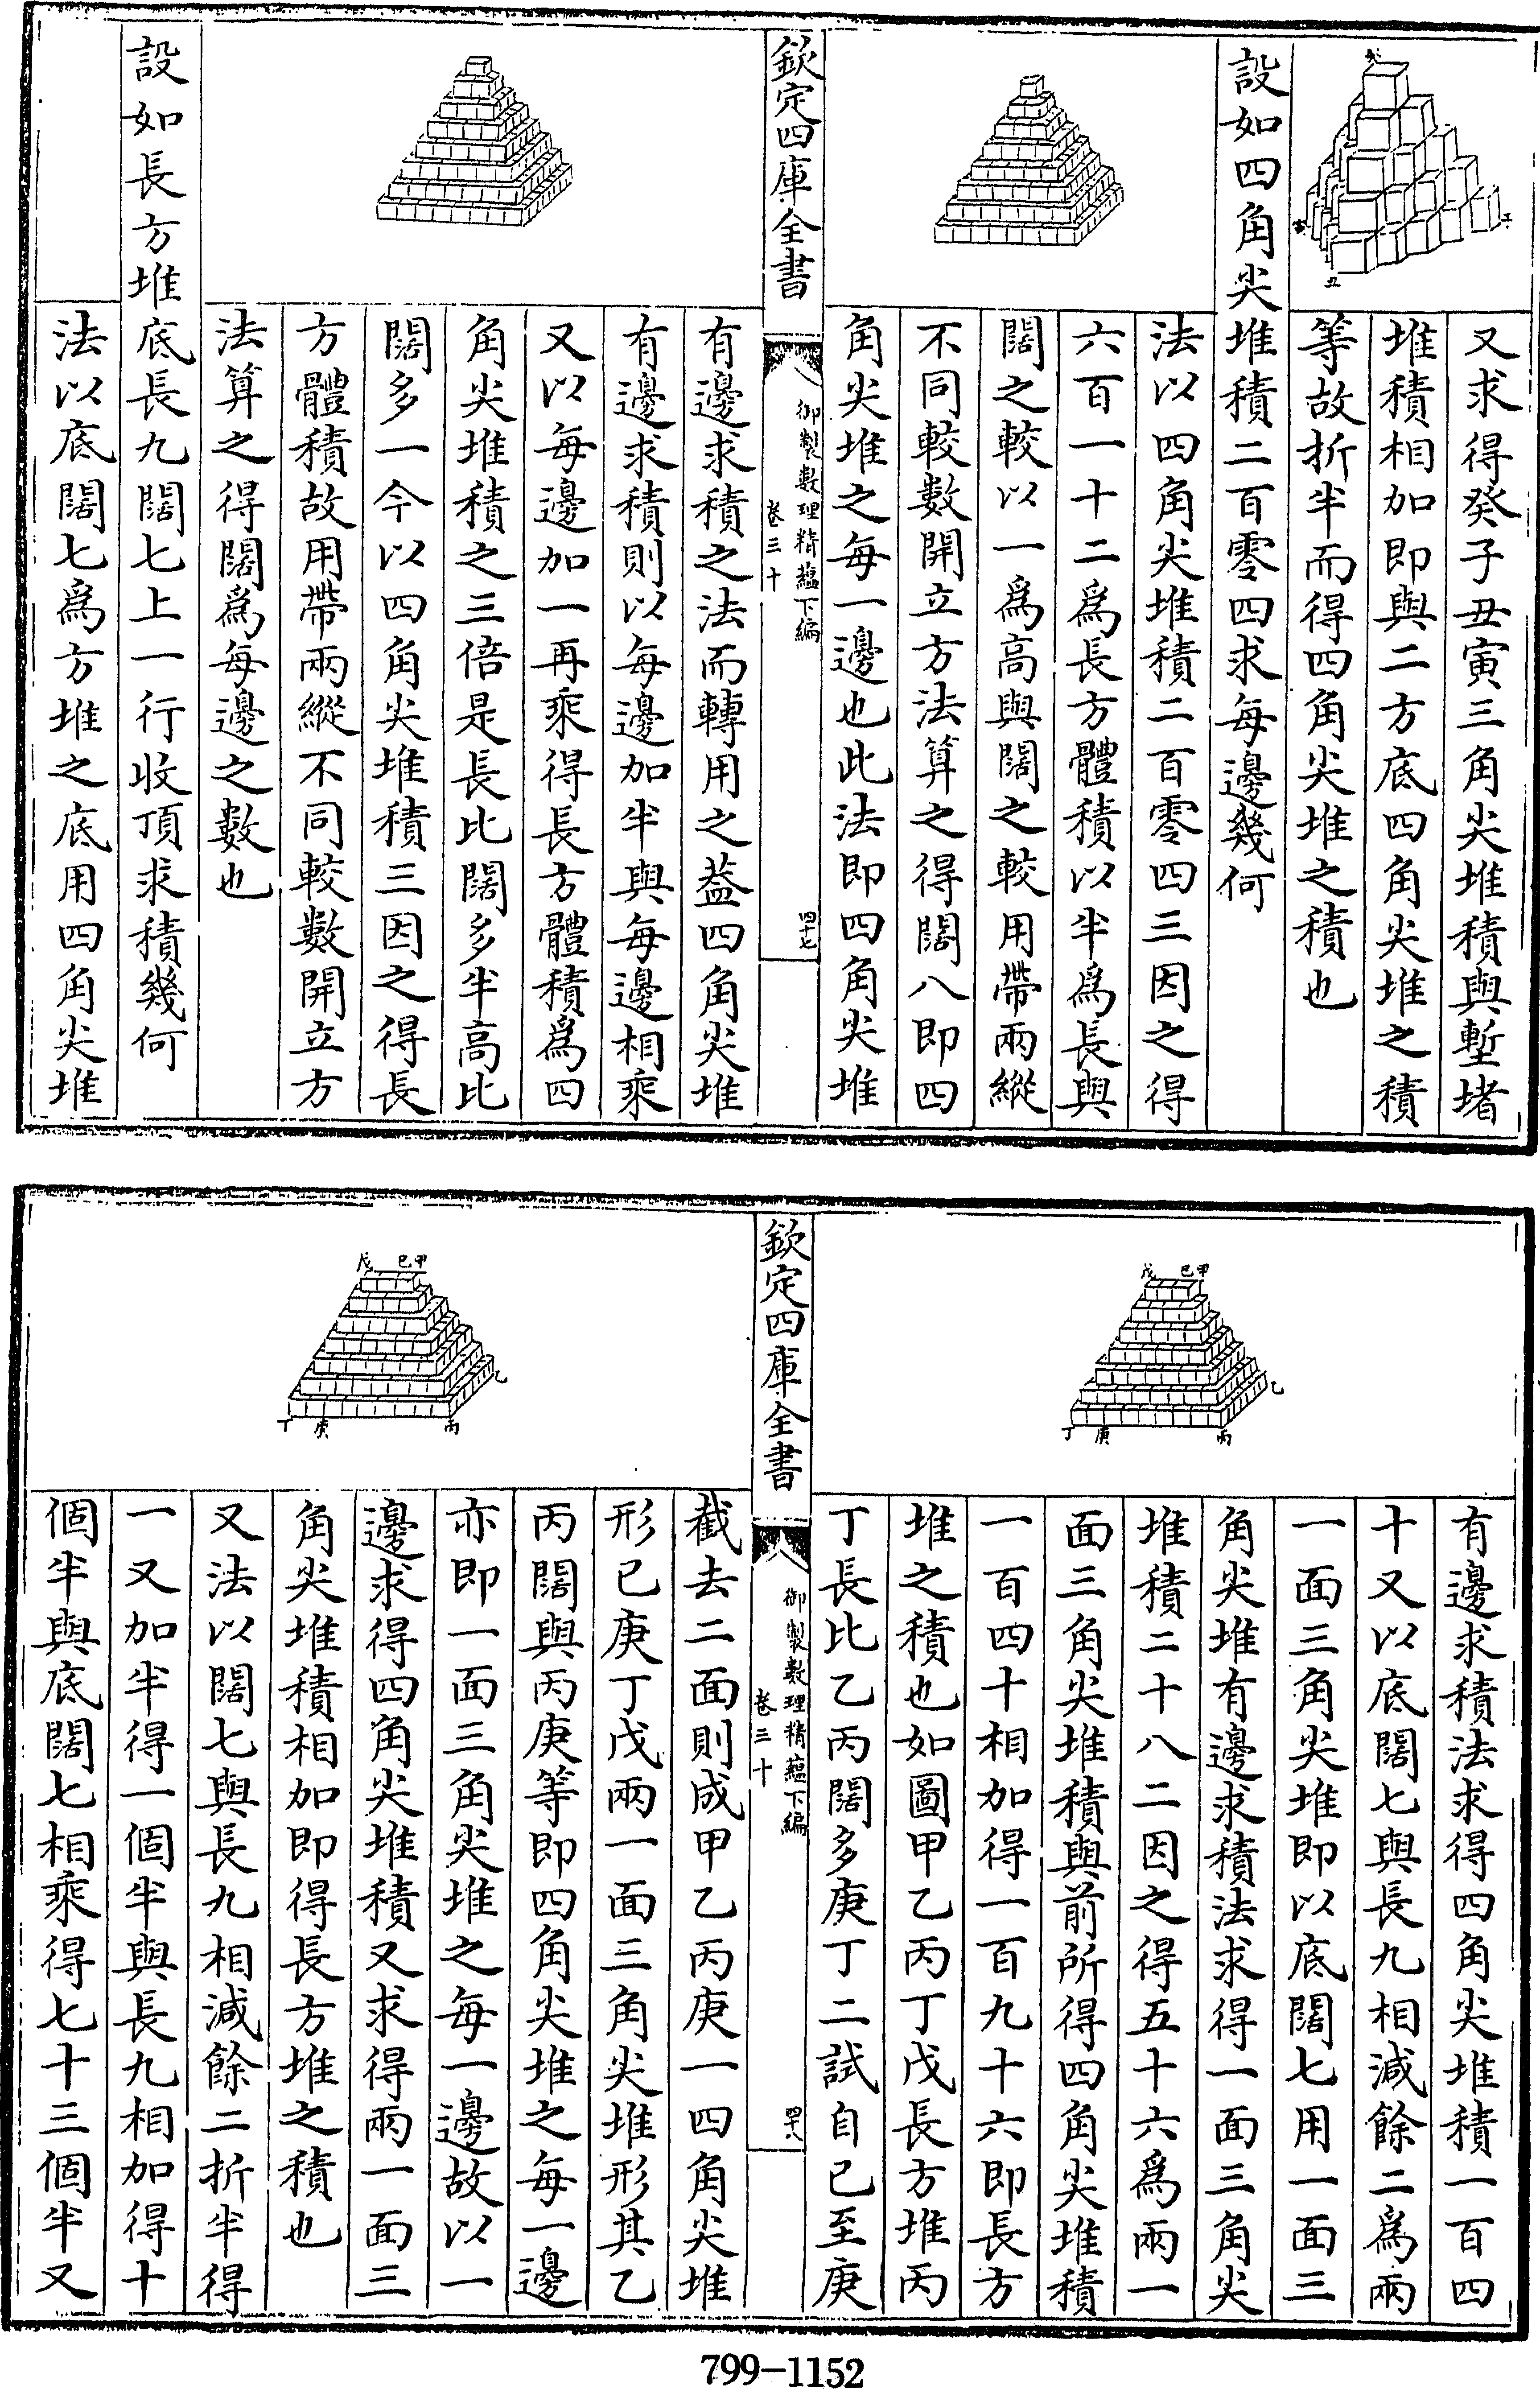 癸
子
丑
寅
又求得癸子丑寅三角尖堆積與塹堵
堆積相加即與二方底四角尖堆之積
等故折半而得四角尖堆之積也
設如四角尖堆積二百零四求每邊幾何
法以四角尖堆積二百零四三因之得
六百一十二爲長方體積以半爲長與
闊之較以一爲高與闊之較用帶兩縱
不同較數開立方法算之得闊八即四
角尖堆之每一邊也此法即四角尖堆
欽定四庫全書
御製數理精蘊下編
卷三十
四十七
有邊求積之法而轉用之蓋四角尖堆
有邊求積則以每邊加半與每邊相乘
又以每邊加一再乘得長方體積爲四
角尖堆積之三倍是長比闊多半高比
闊多一今以四角尖堆積三因之得長
方體積故用帶兩縱不同較數開立方
法算之得闊爲每邊之數也
設如長方堆底長九闊七上一行收頂求積幾何
法以底闊七爲方堆之底用四角尖堆
戊 己甲
乙
丁 庚 丙
有邊求積法求得四角尖堆積一百四
十又以底闊七與長九相減餘二爲兩
一面三角尖堆即以底闊七用一面三
角尖堆有邊求積法求得一面三角尖
堆積二十八二因之得五十六爲兩一
面三角尖堆積與前所得四角尖堆積
一百四十相加得一百九十六即長方
堆之積也如圖甲乙丙丁戊長方堆丙
丁長比乙丙闊多庚丁二試自己至庚
欽定四庫全書
御製數理精蘊下編
卷三十
四十八
戊 己甲
乙
丁 庚 丙
截去二面則成甲乙丙庚一四角尖堆
形已庚丁戊兩一面三角尖堆形其乙
丙闊與丙庚等即四角尖堆之每一邊
亦即一面三角尖堆之每一邊故以一
邊求得四角尖堆積又求得兩一面三
角尖堆積相加即得長方堆之積也
又法以闊七與長九相減餘二折半得
一又加半得一個半與長九相加得十
個半與底闊七相乘得七十三個半又
799-1152